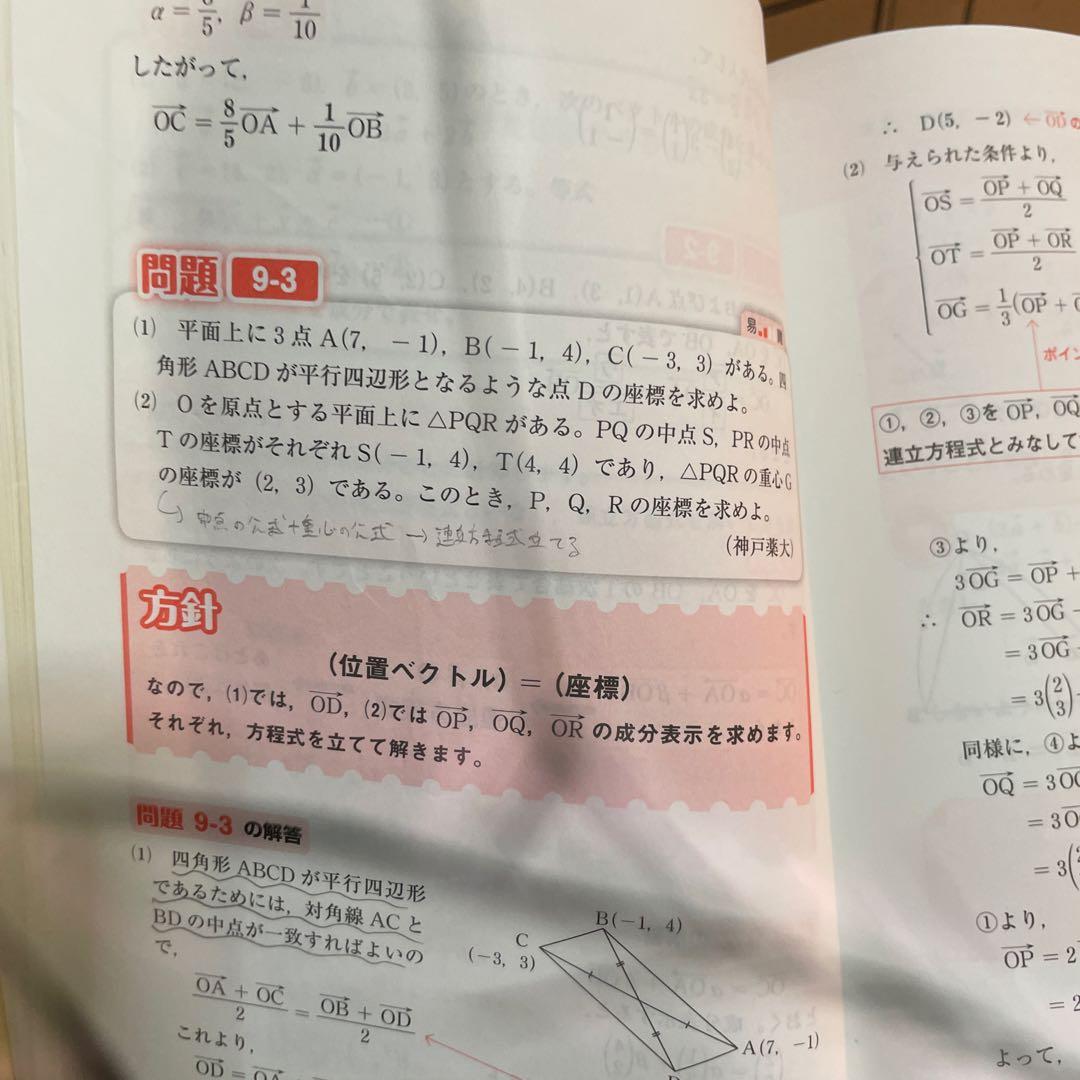 α = 8/5, β = 1/10
したがって,
OC = 8/5 OA + 1/10 OB
問題 9-3
易
(1) 平面上に3点A(7, −1), B(−1, 4), C(−3, 3)がある。四
角形ABCDが平行四辺形となるような点Dの座標を求めよ。
(2) Oを原点とする平面上に△PQRがある。PQの中点S, PRの中点
Tの座標がそれぞれS(−1, 4), T(4, 4)であり, △PQRの重心G
の座標が(2, 3)である。このとき, P, Q, Rの座標を求めよ。
↳ 中点の公式+重心の公式 → 連立方程式立てる
(神戸薬大)
方針
(位置ベクトル)=(座標)
なので, (1)では, OD, (2)では OP, OQ, OR の成分表示を求めます。
それぞれ, 方程式を立てて解きます。
問題 9-3 の解答
(1) 四角形ABCDが平行四辺形
であるためには, 対角線ACと
BDの中点が一致すればよいの
で,
(OA + OC)/2 = (OB + OD)/2
これより,
OD = OA
B(−1, 4)
C
(−3, 3)
A(7, −1)
∴ D(5, −2) ← ODの
(2) 与えられた条件より,
OS = (OP + OQ)/2
OT = (OP + OR)/2
OG = 1/3(OP +
ポイン
①, ②, ③を OP, OQ
連立方程式とみなして
③より,
3OG = OP +
∴ OR = 3OG −
= 3OG
= 3(2 3)
同様に, ④よ
OQ = 3OG
= 3O
= 3(
①より,
OP = 2
= 2
よって,